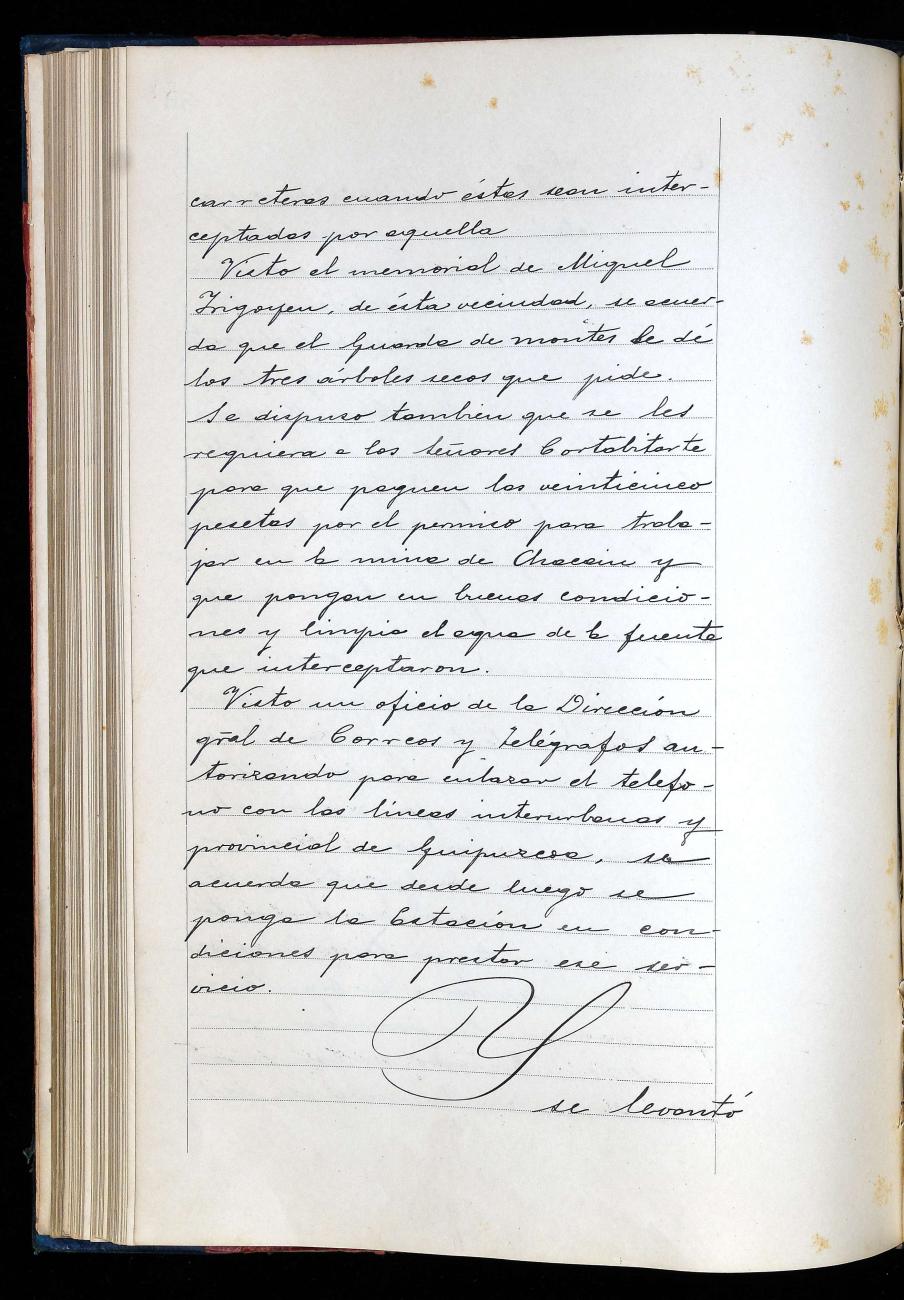 carreteras cuando éstas sean inter-
ceptadas por aquella
Visto el memorial de Miguel
Irigoyen, de ésta vecindad, se acuer-
da que el Guarda de montes le dé
los tres árboles secos que pide.
Se dispuso tambien que se les
requiera a los señores Cortabitarte
para que paguen las veinticinco
pesetas por el permiso para traba-
jar en la mina de Chacain y
que pongan en buenas condicio-
nes y limpia el agua de la fuente
que interceptaron.
Visto un oficio de la Dirección
gral de Correos y Telégrafos au-
torizando para enlazar el telefo-
no con las líneas interurbanas y
provincial de Guipuzcoa, se
acuerda que desde luego se
ponga la Estación en con-
diciones para prestar ese ser-
vicio.
Y
se levantó